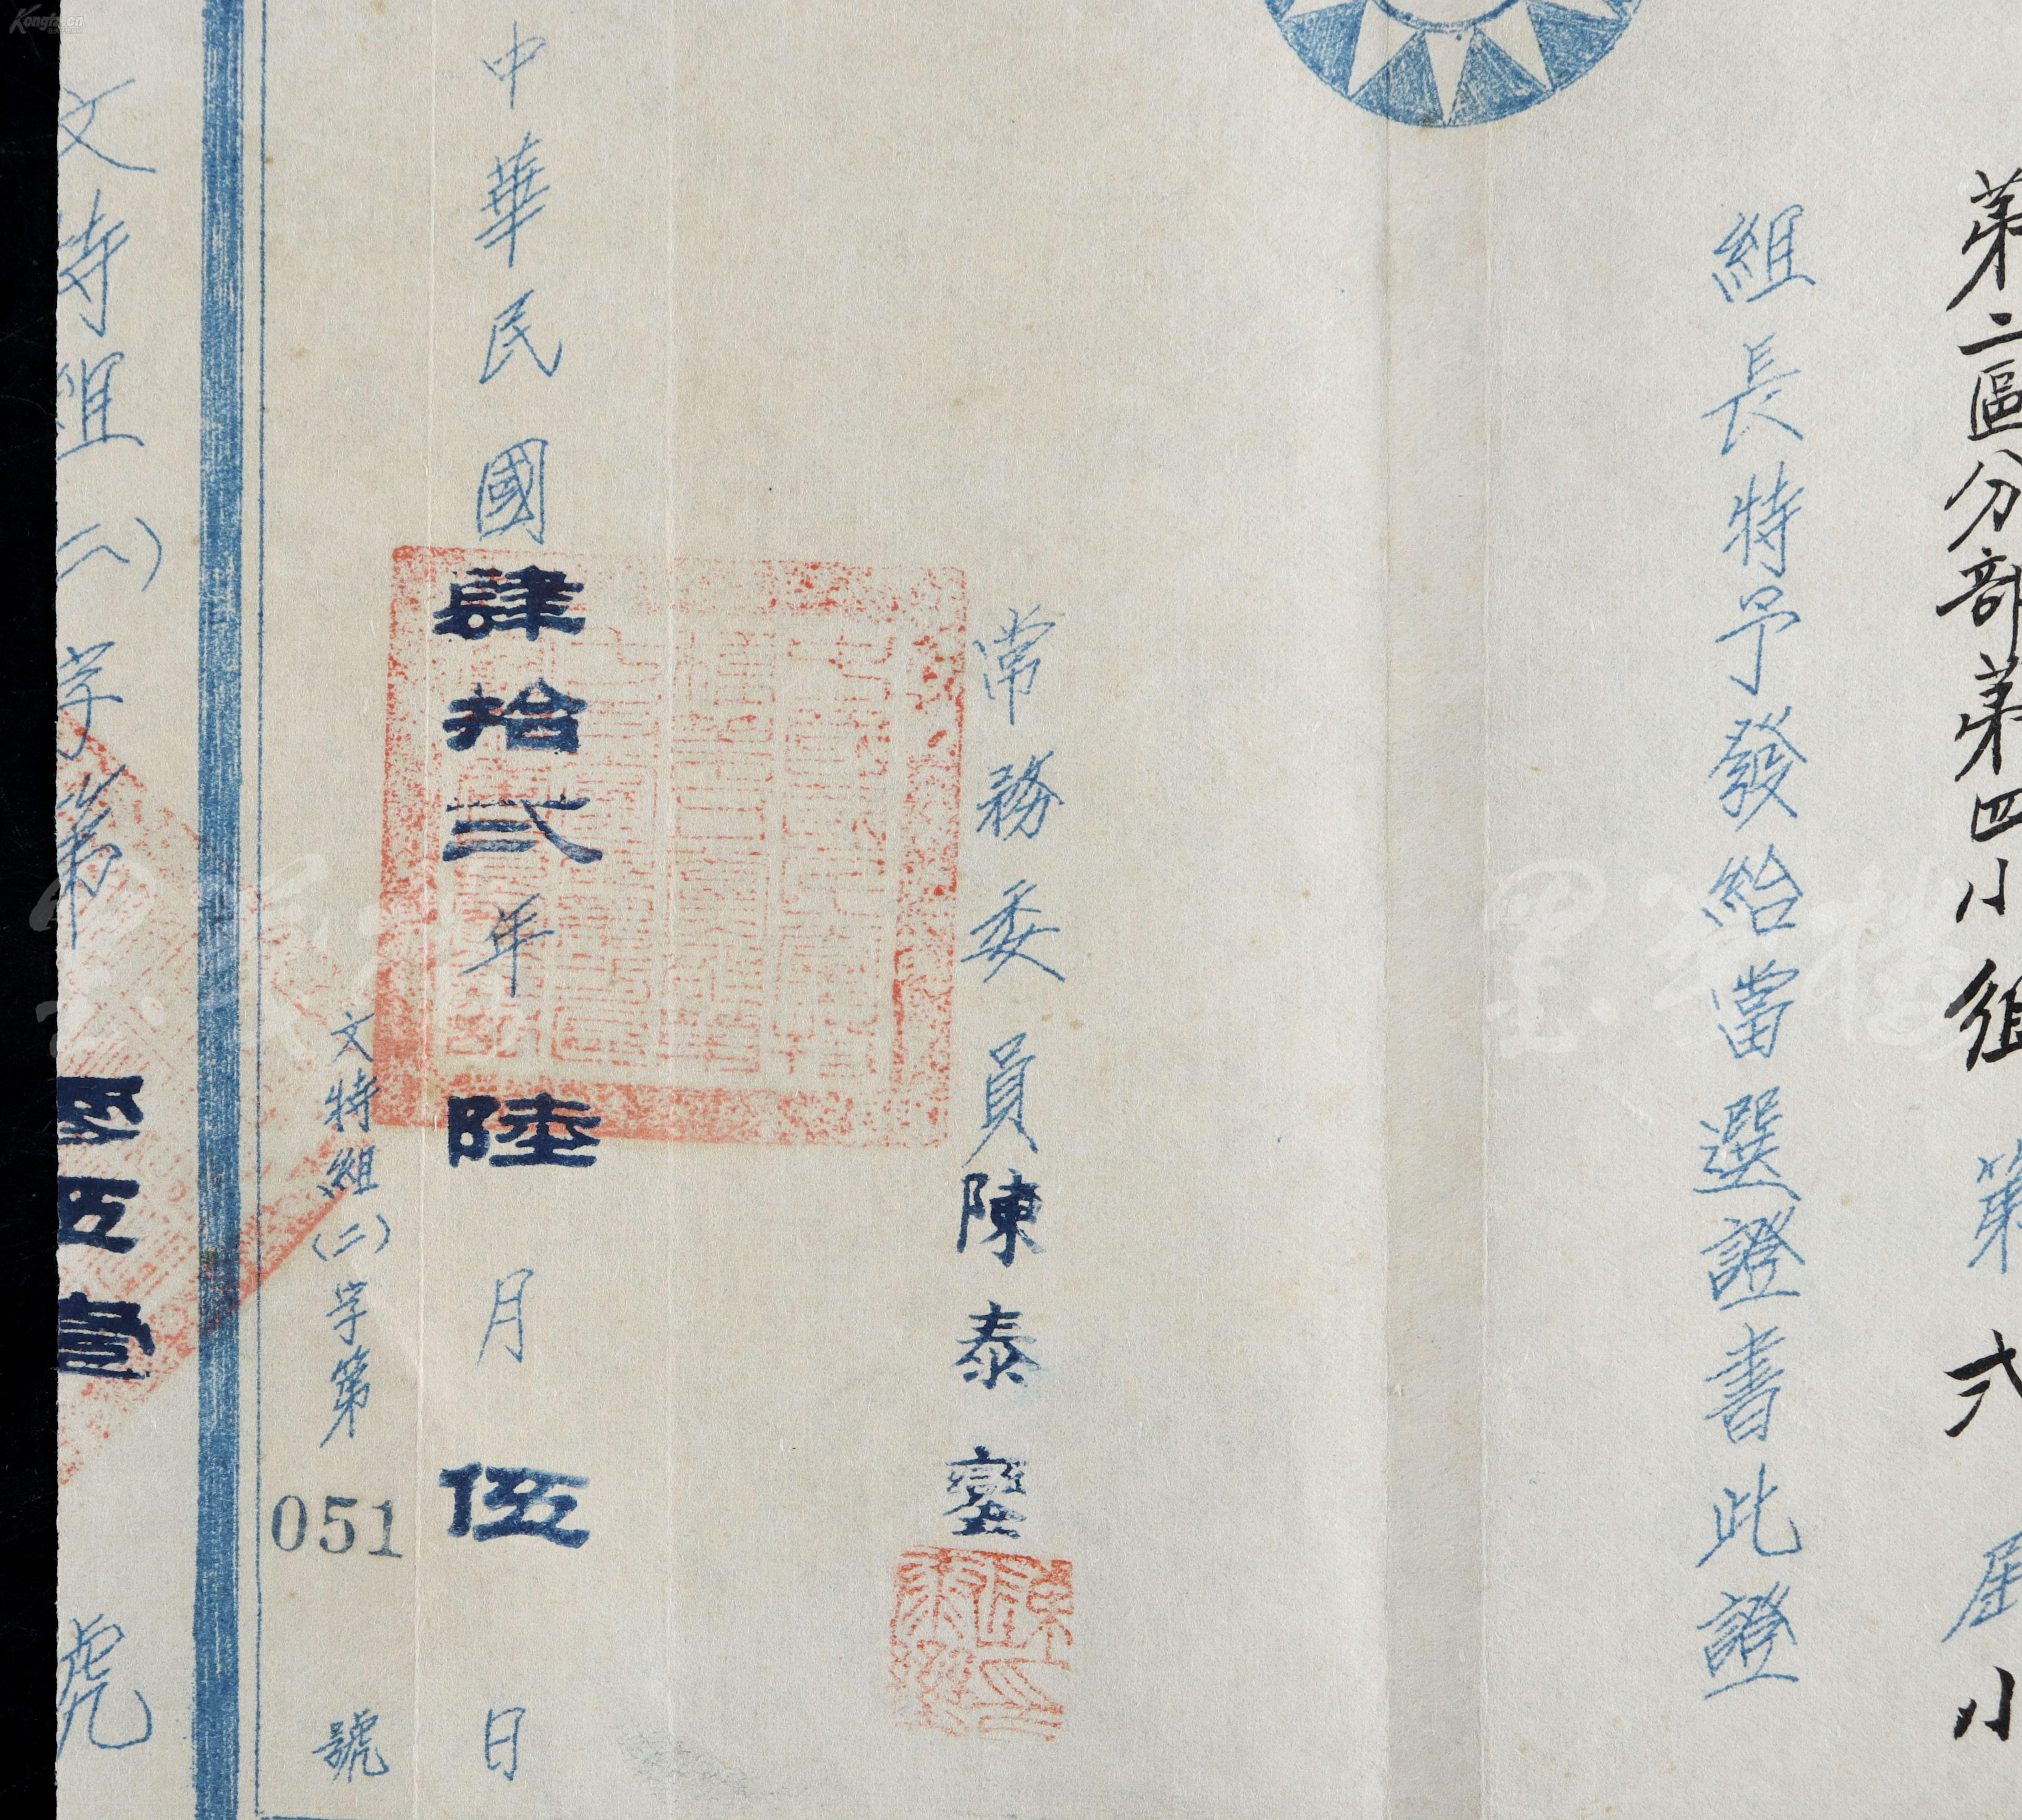 第二區分部第四小組第弍屆小
組長特予發給當選證書此證
常務委員陳泰鑾
中華民國肆拾弍年陸月伍日
文特組(二)字第051號
文特組(二)字第
Kongfz.cn